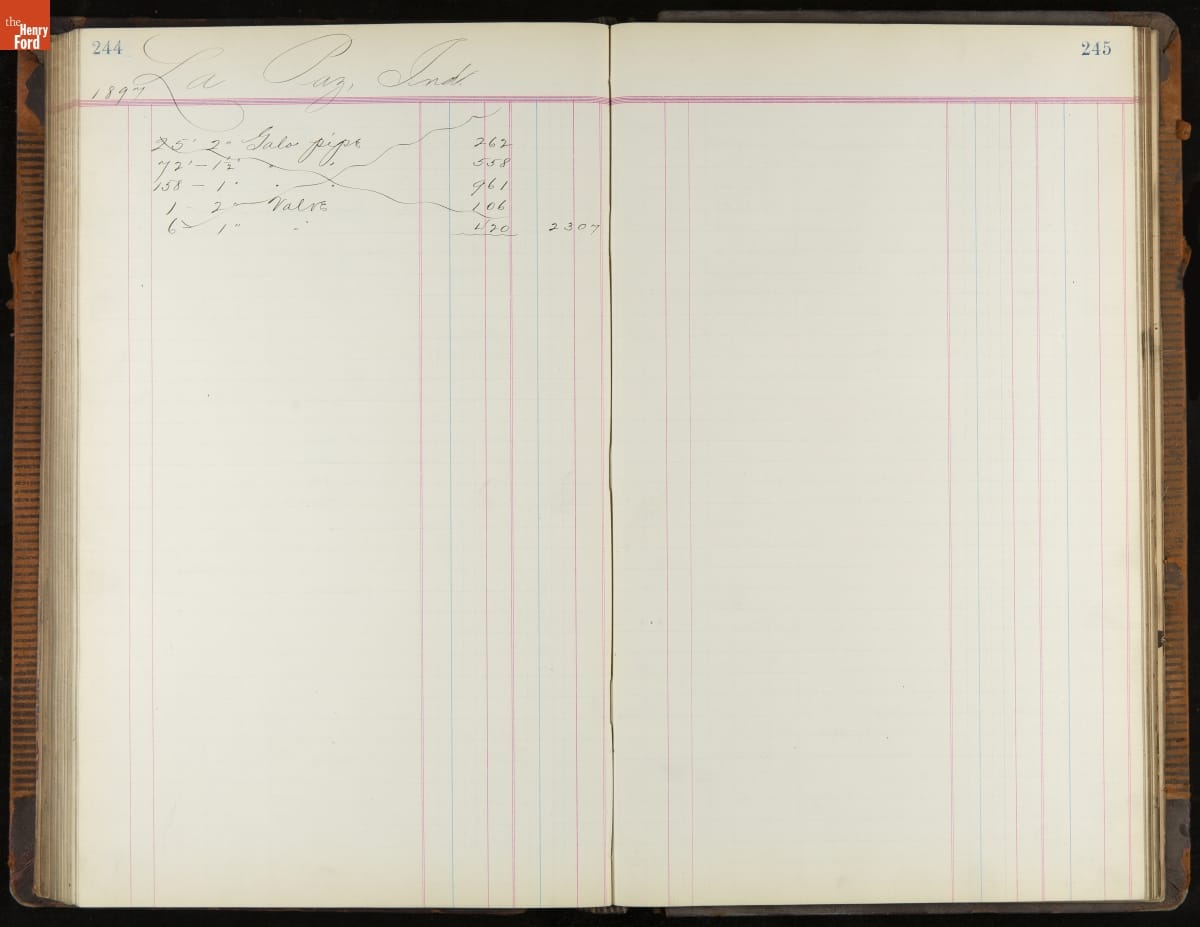 the
Henry
Ford
244
La Paz, Ind.
1897
25' 2" Galv pipe 262
72' - 1 1/2" " " 558
158 - 1" " " 961
1 - 2" Valve 106
6 - 1" " 420 2307
245